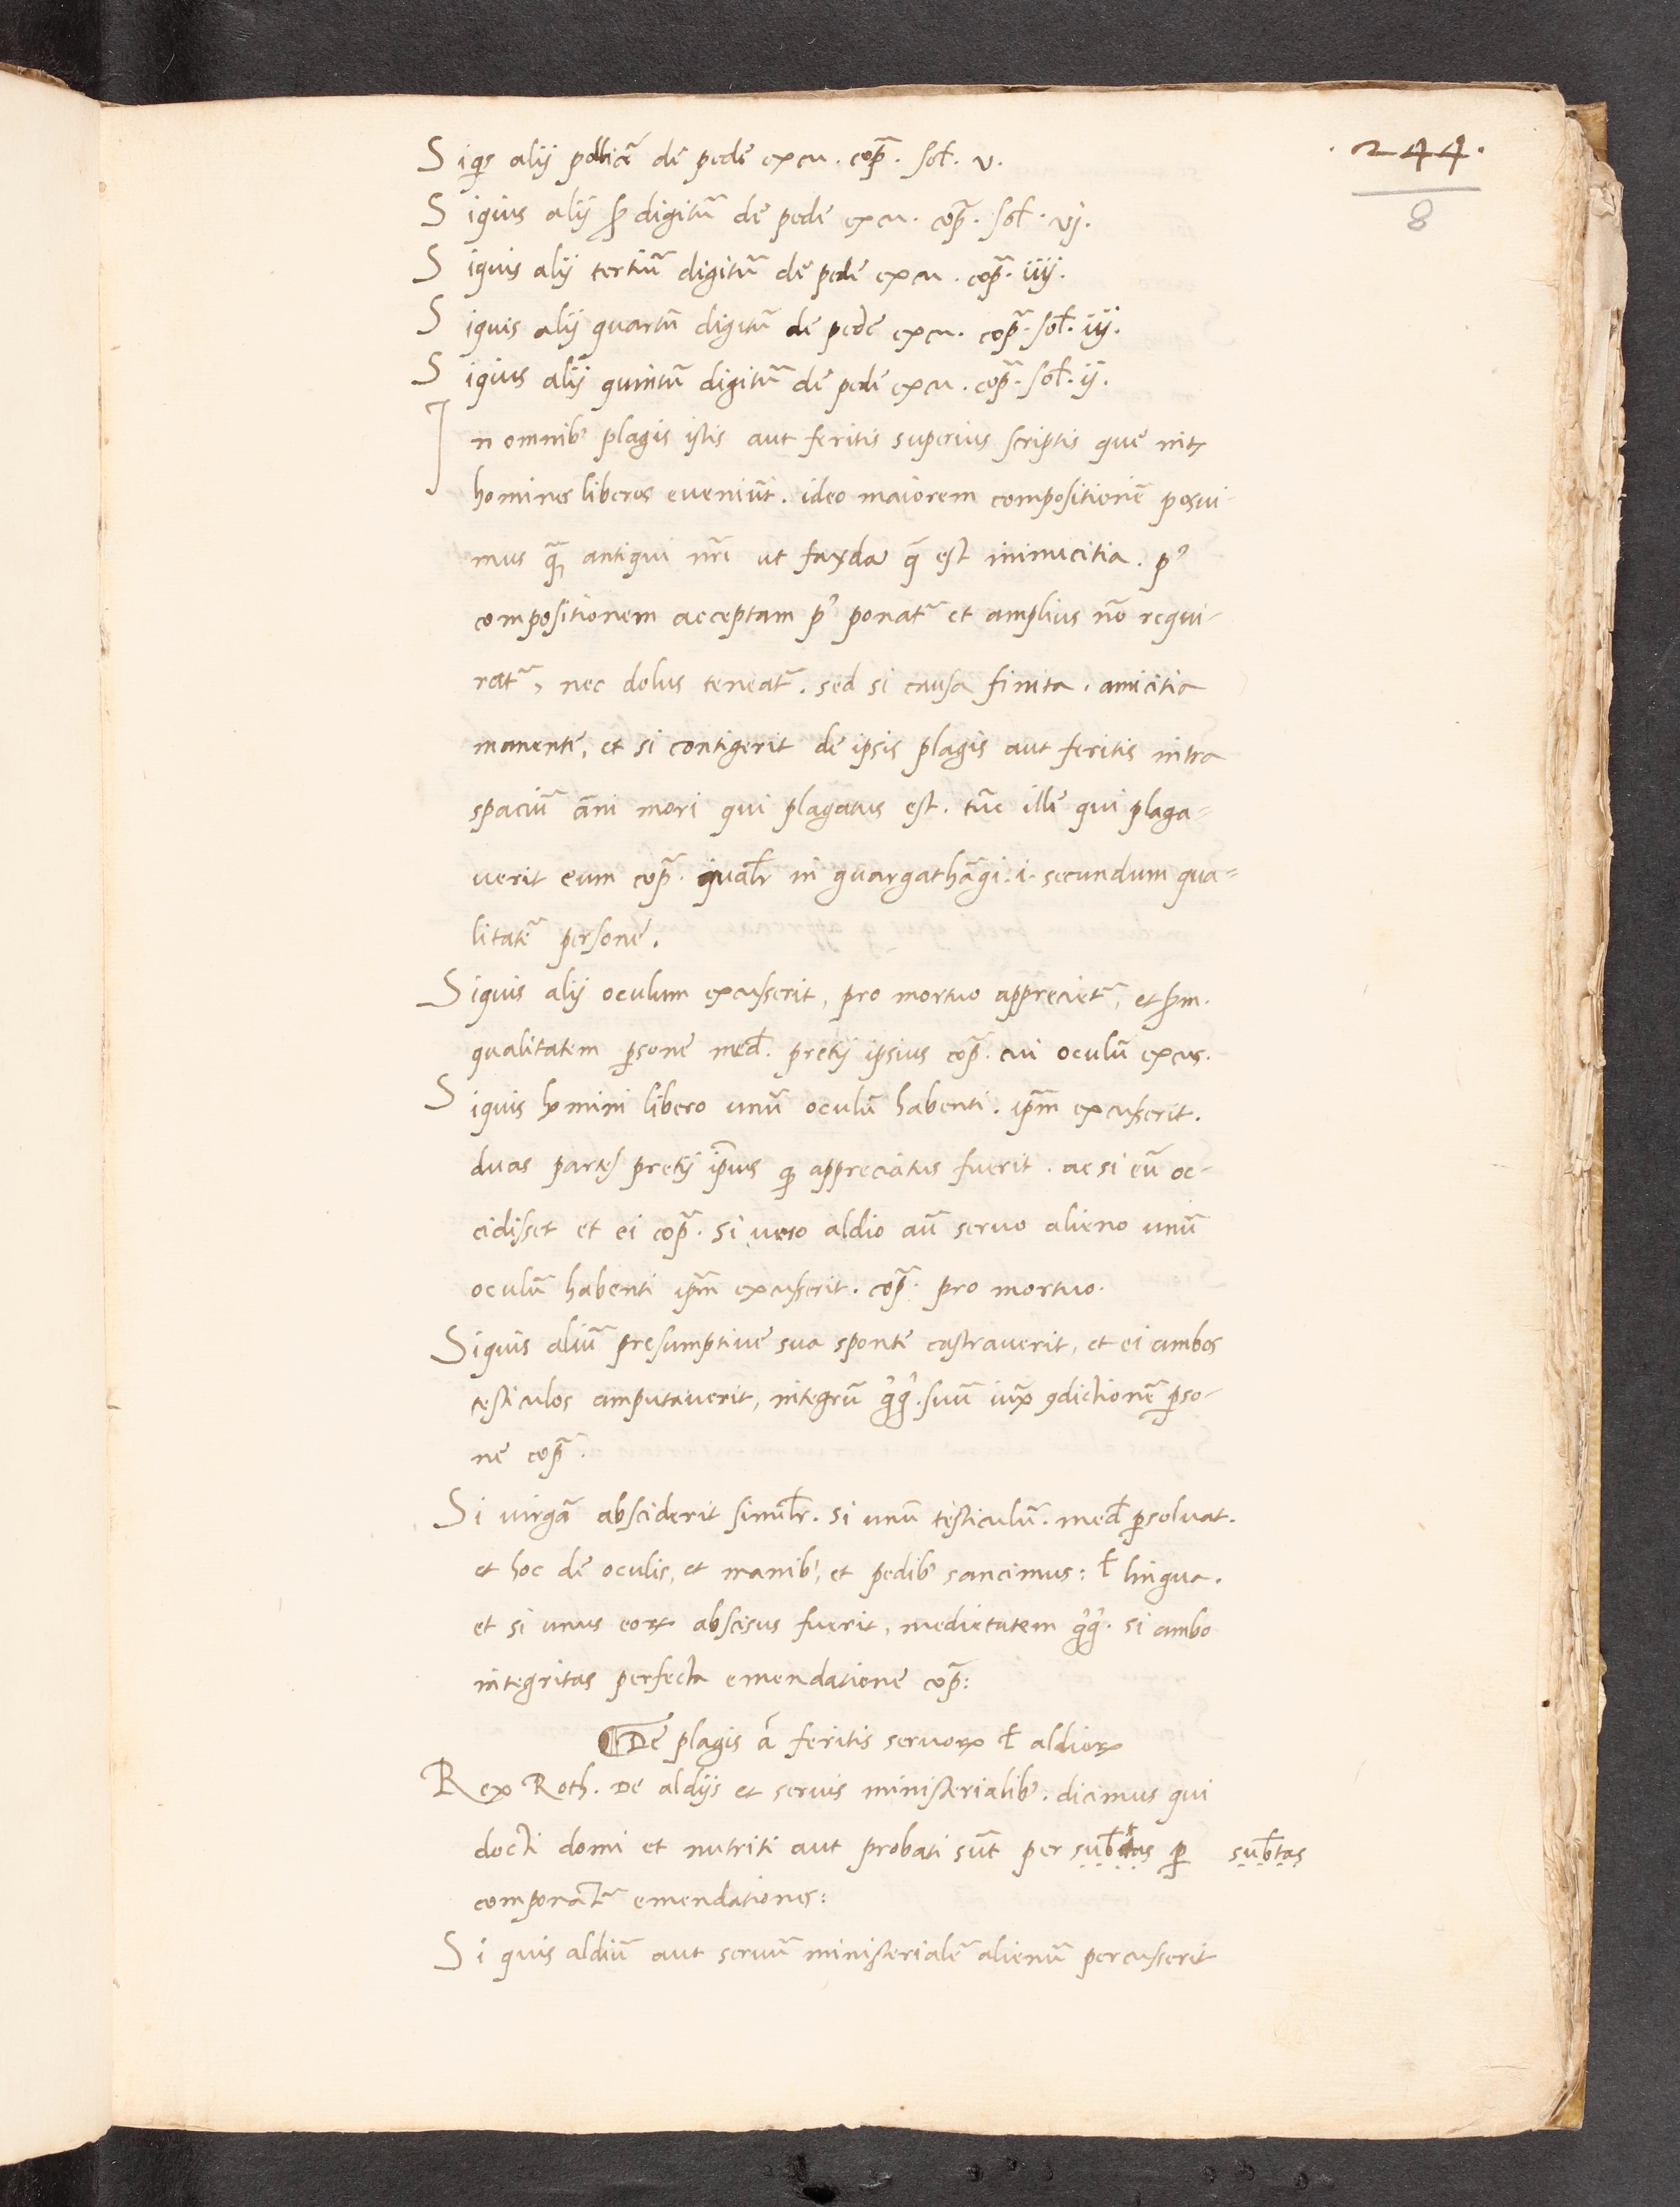 .244.
8
Siqis alij pollicē de pede excu. cōp̄. sol. v.
Siquis alij s̄ digitū de pede excu. cōp̄. sol. vj.
Siquis alij tertiū digitū de pede excu. cōp̄. iiij.
Siquis alij quartū digitū de pede excu. cōp̄. sol. iij.
Siquis alij quintū digitū de pede excu. cōp̄. sol. ij.
In omnib' plagis istis aut feritis superius scriptis que int
homines liberos eveniūt. ideo maiorem compositionē posui-
mus q̄ antiqui nr̄i ut fayda q̄ est inimicitia. p'
compositionem acceptam p' ponat~ et amplius nō requi-
rat~, nec dolus teneat~. sed si causa finita. amicitia
manente, et si contigerit de ipsis plagis aut feritis intra
spaciū āni mori qui plagatus est. tūc ille qui plaga=
verit eum cōp̄. qualr in guargathāgi .i. secundum qua=
litatē persone.
Siquis alij oculum excusserit, pro mortuo apprecięt~, et s̄m.
qualitatem ꝑsone med. pretij ipsius cōp̄. cui oculū excus.
Siquis homini libero unū oculū habenti. ip̄m excusserit.
duas partes pretij ip̄ius q̄ appreciatus fuerit. ac si eū oc-
cidisset et ei cōp̄. si vero aldio aū servo alieno unū
oculū habenti ip̄m excusserit. cōp̄. pro mortuo.
Siquis aliū presumptive sua sponte castraverit, et ei ambos
testiculos amputaverit, integrū g̊g̊. suū iux̄ ꝯdictionē ꝑso-
ne cōp̄.
Si virgā absciderit similr. si unū testiculū. med ꝑsolvat.
et hoc de oculis, et manib', et pedib' sancimus: ł lingua.
et si unus eoꝝ abscisus fuerit, medietatem g̊g̊. si ambo
integritas perfecta emendatione cōp̄:
¶De plagis ā feritis servoꝝ ł aldioꝝ
Rex Roth. De aldijs et servis ministerialib'. dicimus qui
docti domi et nutriti aut probati sūt per subłtas ꝑ subłtas
componat~ emendationes:
Si quis aldiū aut servū ministerialē alienū percusserit